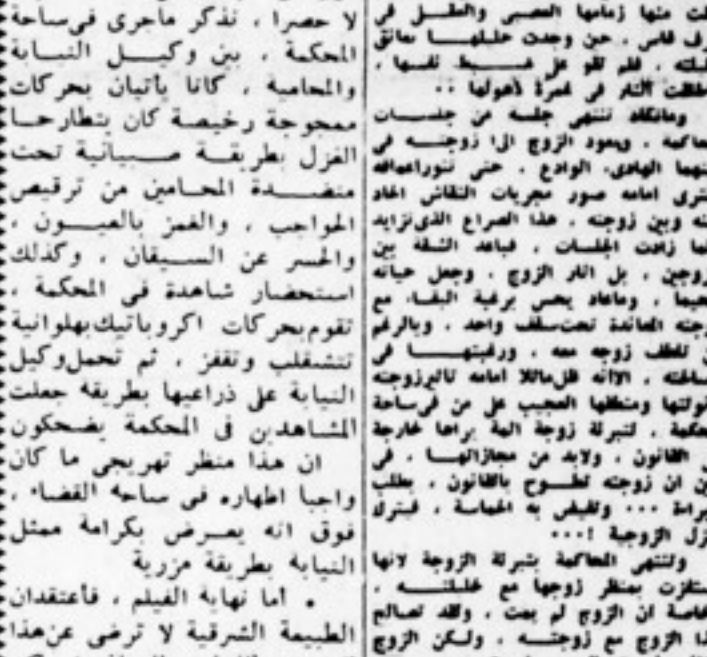 منها زمامها العصبى والطفل فى
قاس . حين وجدت حليلها يعانق
فلم تقو على ضبط نفسها ،
النار فى غمرة ذهولها ..
وماتكاد تنتهى جلسة من جلسات
ويعود الزوج الى زوجته فى
الهادىء الوادع ، حتى
امامه صور مجريات النقاش الحاد
وبين زوجته ، هذا الصراع الذى تزايد
زادت الجلسات ، فباعد الشقة بين
بل اثار الزوج ، وجعل حياته
وماعاد يحس برغبة البقاء مع
المعاندة تحت سقف واحد ، وبالرغم
تلطف زوجه معه ، ورغبتهـا فى
الا انه ظل ماثلا امامه تاثير زوجته
ومنطقها العجيب على من فى ساحة
لتبرئة زوجة الهة يراها خارجة
القانون ، ولابد من مجازاتها ، فى
ان زوجته تطوح بالقانون ، بطلب
... وتفيض به الحماسة ، فيترك
الزوجية !...
وتنتهى المحاكمة بتبرئة الزوجة لانها
بمنظر زوجها مع خليلته ،
ان الزوج لم يمت ، ولقد تصالح
الزوج مع زوجته ، ولكن الزوج
لا حصرا ، نذكر ماجرى فى ساحة
المحكمة ، بين وكيل النيابة
والمحامية ، كانا يأتيان بحركات
ممجوجة رخيصة كان يتطارحا
الغزل بطريقة صبيانية تحت
منضدة المحامين من ترقيص
الحواجب ، والغمز بالعيون ،
والحسر عن السيقان ، وكذلك
استحضار شاهدة فى المحكمة ،
تقوم بحركات اكروباتيك بهلوانية
تتشقلب وتقفز ، ثم تحمل وكيل
النيابة على ذراعيها بطريقة جعلت
المشاهدين فى المحكمة يضحكون
ان هذا منظر تهريجى ما كان
واجبا اظهاره فى ساحة القضاء ،
فوق انه يعرض بكرامة ممثل
النيابة بطريقة مزرية
• أما نهاية الفيلم ، فأعتقد ان
الطبيعة الشرقية لا ترضى عن هذا